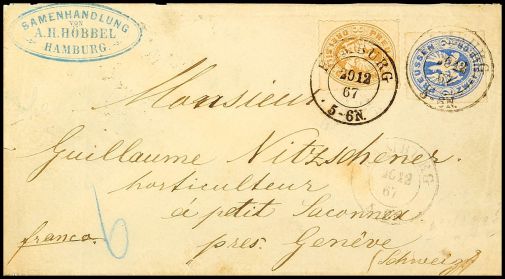 SAMENHANDLUNG
VON
A.H. HÖBBEL
HAMBURG
HAMBURG
20 12
67
5-6N.
PREUSSEN
Monsieur
Guillaume Nitzschener
horticulteur
à petit Saconnex
près Genève
(Schweiz)
franco.
6
20 12
67